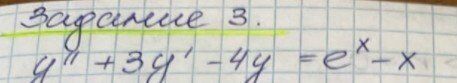 Задание 3.
y'' + 3y' - 4y = eˣ - x